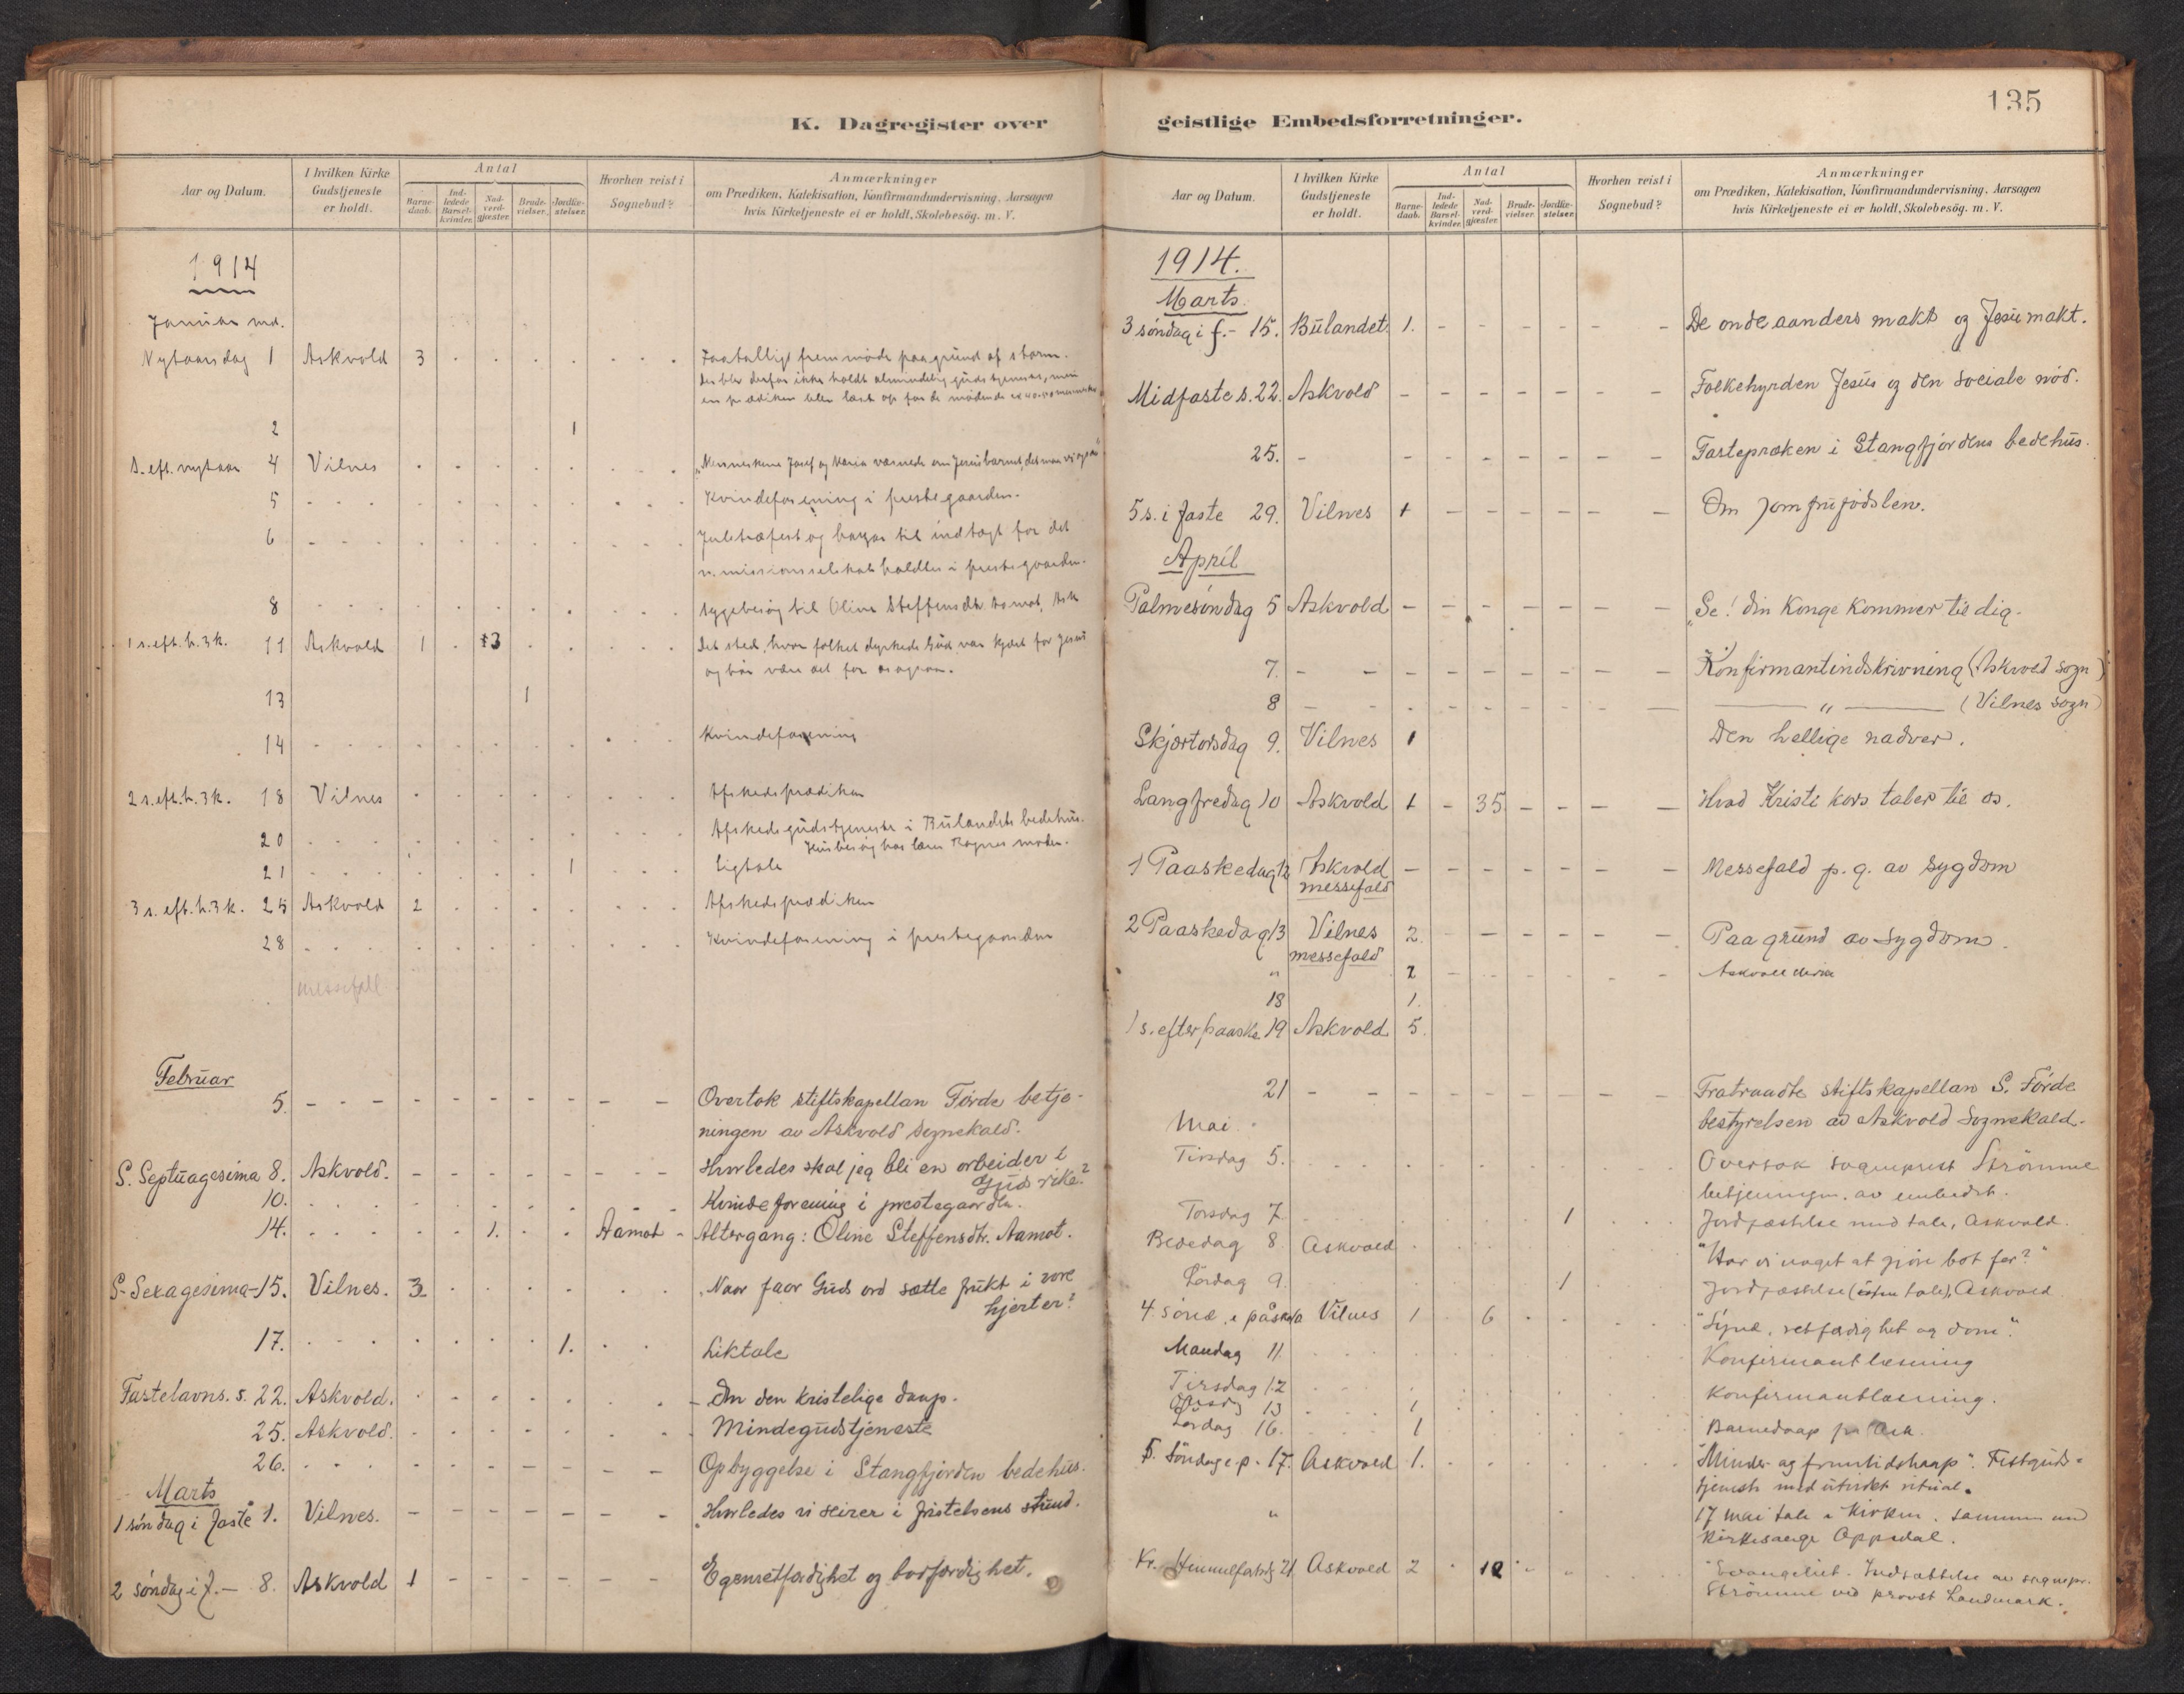 135
K. Dagregister over
geistlige Embedsforretninger.
Aar og Datum.
I hvilken Kirke Gudstjeneste er holdt.
Antal
Barnedaab.
Indledede Barselkvinder.
Nadverdgjæster.
Brudevielser.
Jordfæstelser.
Hvorhen reist i Sognebud?
Anmærkninger
om Prædiken, Katekisation, Konfirmandundervisning. Aarsagen
hvis Kirketjeneste ei er holdt, Skolebesög. m. V.
1914
Januar md.
Nytaarsdag 1 Askvold 3 Faatalligt fremmöde paa grund af storm.
Der blev derfor ikke holdt almindelig gudstjeneste, men
en prædiken blev læst op for de mödende
2 1
S. eft. nytaar 4 Vilnes "Menneskene Josef og Maria værnede om Jesusbarnet, det maa vi ogsaa"
5 Kvindeforening i prestegaarden.
6 Juletræfest og basar til indtægt for det
n. missionsselskab holdtes i prestegaarden.
8 Sygebesög til Oline Steffensdtr Aamot, Ask
1 s. eft. h. 3 k. 11 Askvold 1 13 Det sted, hvor folket dyrkede Gud var kjært for Jesus
og bör være det for os ogsaa.
13 1
14 Kvindeforening
2 s. eft. h. 3 k. 18 Vilnes Afskedsprædiken
20 Afskedsgudstjeneste i Bulandets bedehus.
Husbesög hos lærer Ragnes moder.
21 1 Ligtale
3 s. eft. h. 3 k. 25 Askvold 2 Afskedsprædiken
28 Kvindeforening i prestegaarden
messefall
Februar
5. Overtok stiftskapellan Förde betje-
ningen av Askvold sognekald.
S. Septuagesima 8. Askvold. Hvorledes skal jeg bli en arbeider i
Guds rike?
10. Kvindeforening i prestegaarden.
14. 1. Aamot Altergang: Oline Steffensdtr. Aamot.
S. Sexagesima 15. Vilnes. 3 Naar faar Guds ord sætte frukt i vore
hjerter?
17. 1. Liktale
Fastelavns. s. 22. Askvold. Om den kristelige daap.
25. Askvold. Mindegudstjeneste
26. Opbyggelse i Stangfjorden bedehus.
Marts
1 söndag i faste 1. Vilnes. Hvorledes vi seirer i fristelsens stund.
2 söndag i f. 8. Askvold 1 Egenretfærdighet og botfærdighet.
Aar og Datum.
I hvilken Kirke Gudstjeneste er holdt.
Antal
Barnedaab.
Indledede Barselkvinder.
Nadverdgjæster.
Brudevielser.
Jordfæstelser.
Hvorhen reist i Sognebud?
Anmærkninger
om Prædiken, Katekisation, Konfirmandundervisning. Aarsagen
hvis Kirketjeneste ei er holdt, Skolebesög. m. V.
1914.
Marts.
3 söndag i f. 15. Bulandet 1. De onde aanders makt og Jesu makt.
Midfaste s. 22. Askvold Folkehyrden Jesus og den sociale nöd.
25. Fastepræken i Stangfjordens bedehus.
5 s. i faste 29. Vilnes 1 Om jomfrufödslen.
April
Palmesöndag 5 Askvold "Se! din Konge kommer til dig.
7. Konfirmantindskrivning (Askvold sogn)
8 " (Vilnes sogn)
Skjærtorsdag 9. Vilnes 1 Den hellige nadver.
Langfredag 10 Askvold 1 35 Hvad Kristi kors taler til os.
1 Paaskedag 12 Askvold Messefald p. g. av sygdom
messefald
2 Paaskedag 13 Vilnes 2. Paa grund av sygdom.
messefald
" 2 Askvold
18 1.
1 s. efter paaske 19 Askvold 5.
21 Fratraadte stiftskapellan S. Förde
bestyrelsen av Askvold Sognekald.
Mai
Tirsdag 5. Overtok sogneprest Strömme
betjeningen av embedet.
Torsdag 7. 1 Jordfæstelse med tale, Askvold.
Bededag 8. Askvold "Har vi noget at gjöre bot for?"
Lördag 9. 1 Jordfæstelse (uten tale), Askvold
4. sönd. e påske 10 Vilnes 1 6 "Synd, retfærdighet og dom".
Mandag 11. Konfirmantlæsning
Tirsdag 12 Konfirmantlæsning.
Onsdag 13 1
Lördag 16. 1 Barnedaap
5. Söndag e. p. 17. Askvold 1. "Minder og fremtidshaap". Festguds-
tjeneste med utvidet ritual.
" 17 mai tale i Kirken. sammen med
kirkesanger Oppedal.
Kr. Himmelfartsdg 21 Askvold 2 12 "Evangeliet. Indsættelse av sognepr.
Strömme ved provst Landmark.